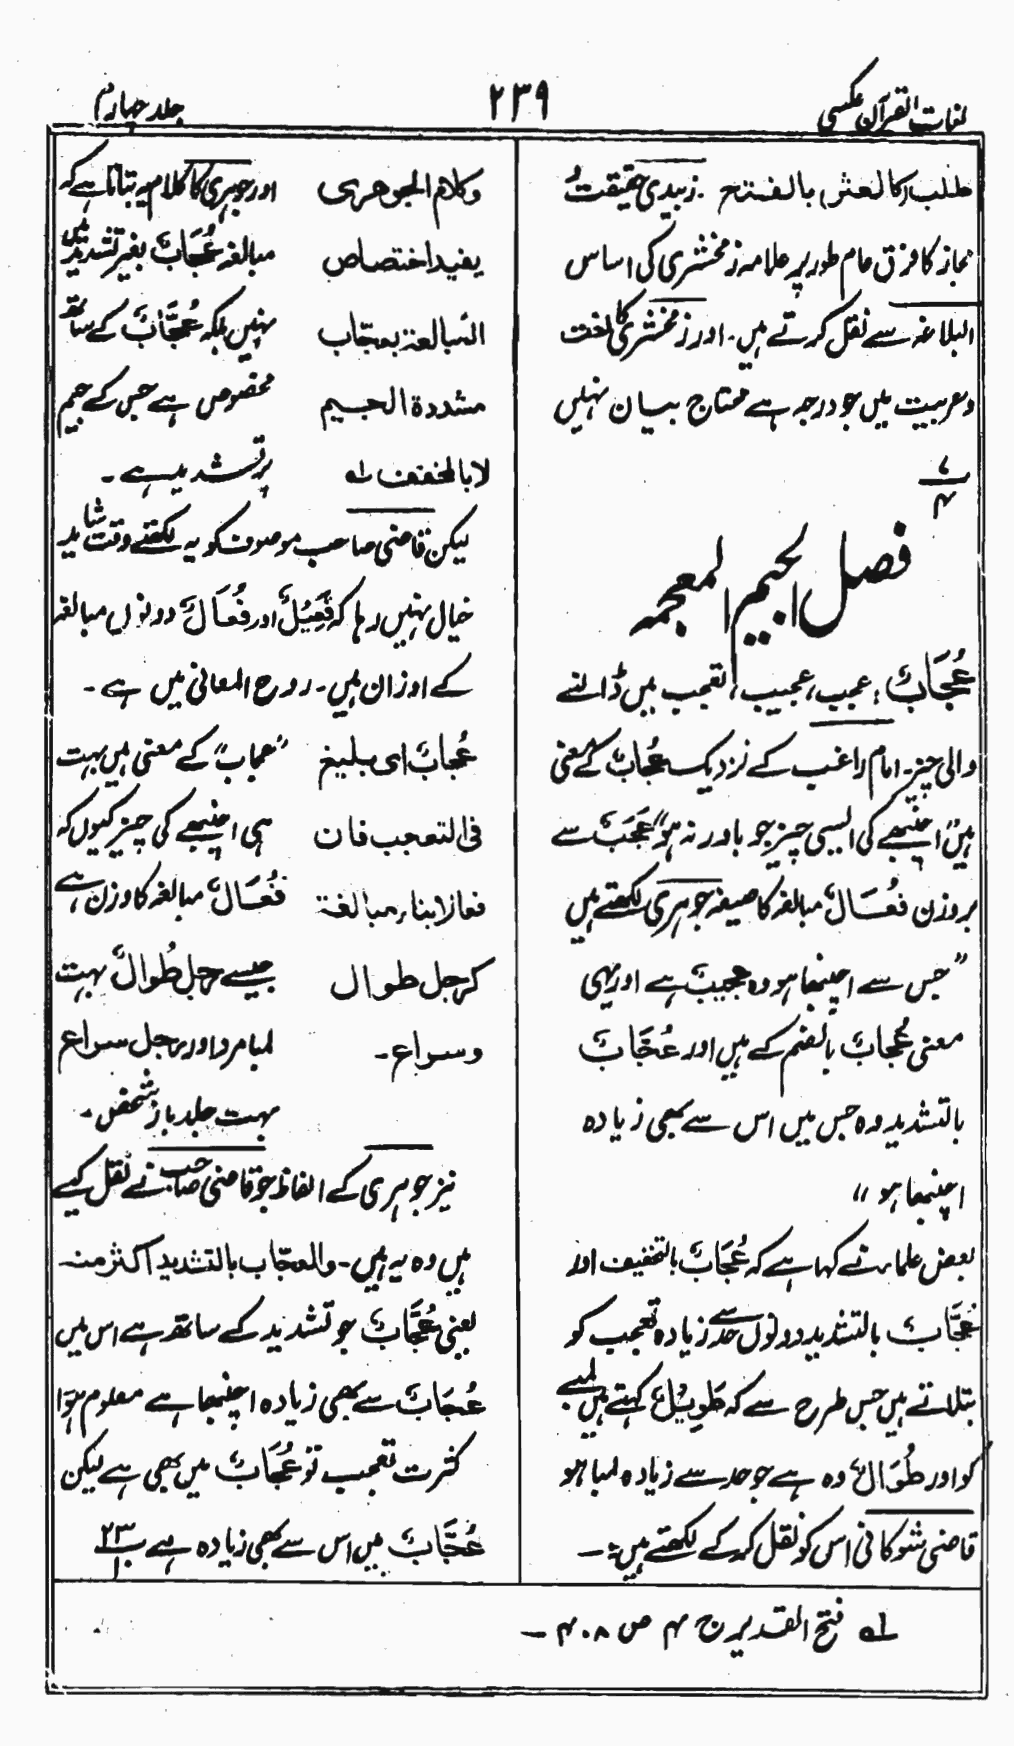 لغات القرآن عکسی
۲۳۹
جلد چہارم
طلب (کالعش) بالفتح۔ زبیدی حقیقت و
مجاز کا فرق عام طور پر علامہ زمخشری کی اساس
البلاغہ سے نقل کرتے ہیں۔ اور زمخشری کا لغت
وعربیت میں جو درجہ ہے محتاج بیان نہیں
۷
۴
فصل الجیم المعجمہ
عُجَابٌ: عجب، عجیب، تعجب میں ڈالنے
والی چیز۔ امام راغب کے نزدیک عُجابٌ کے معنی
ہیں "اچنبھے کی ایسی چیز جو باور نہ ہو" عَجَبٌ سے
بروزن فُعَالٌ مبالغہ کا صیغہ جوہری لکھتے ہیں
"جس سے اچنبھا ہو وہ عجیبٌ ہے اور یہی
معنی عُجابٌ بالضم کے ہیں اور عُجَّابٌ
بالتشدید وہ جس میں اس سے بھی زیادہ
اچنبھا ہو"
بعض علماء نے کہا ہے کہ عُجَابٌ بالتخفیف اور
عُجَّابٌ بالتشدید دونوں حد سے زیادہ تعجب کو
بتلاتے ہیں جس طرح سے کہ طَوِیْلٌ کہتے ہیں لمبے
کو اور طُوَالٌ وہ ہے جو حد سے زیادہ لمبا ہو
قاضی شوکانی اس کو نقل کر کے لکھتے ہیں:۔
وکلام الجوھری
یفید اختصاص
المبالغۃ بعجّاب
مشددۃ الجیم
لا بالمخفف لہ
اور جوہری کا کلام یہ بتاتا ہے کہ
مبالغہ عُجَابٌ بغیر تشدید میں
نہیں بلکہ عُجَّابٌ کے ساتھ
مخصوص ہے جس کے جیم
پر تشدید ہے۔
لیکن قاضی صاحب موصوف کو یہ لکھتے وقت شاید
خیال نہیں رہا کہ فَعِیْلٌ اور فُعَالٌ دونوں مبالغہ
کے اوزان ہیں۔ روح المعانی میں ہے۔
عُجابٌ ای بلیغ
فی التعجب فان
فعالا بناء مبالغۃ
کرجل طوال
وسراع۔
"عجاب" کے معنی ہیں بہت
ہی اچنبھے کی چیز کیوں کہ
فُعَالٌ مبالغہ کا وزن ہے
جیسے رجل طُوالٌ بہت
لمبا مرد اور رجل سراع
بہت جلد باز شخص۔
نیز جوہری کے الفاظ جو قاضی صاحب نے نقل کیے
ہیں وہ یہ ہیں۔ والعجّاب بالتشدید اکثر منہ
یعنی عُجَّابٌ جو تشدید کے ساتھ ہے اس میں
عُجَابٌ سے بھی زیادہ اچنبھا ہے معلوم ہوا
کثرت تعجب تو عُجَابٌ میں بھی ہے لیکن
عُجَّابٌ میں اس سے بھی زیادہ ہے ۲۳
لہ فتح القدیر ج ۴ ص ۴۰۸۔